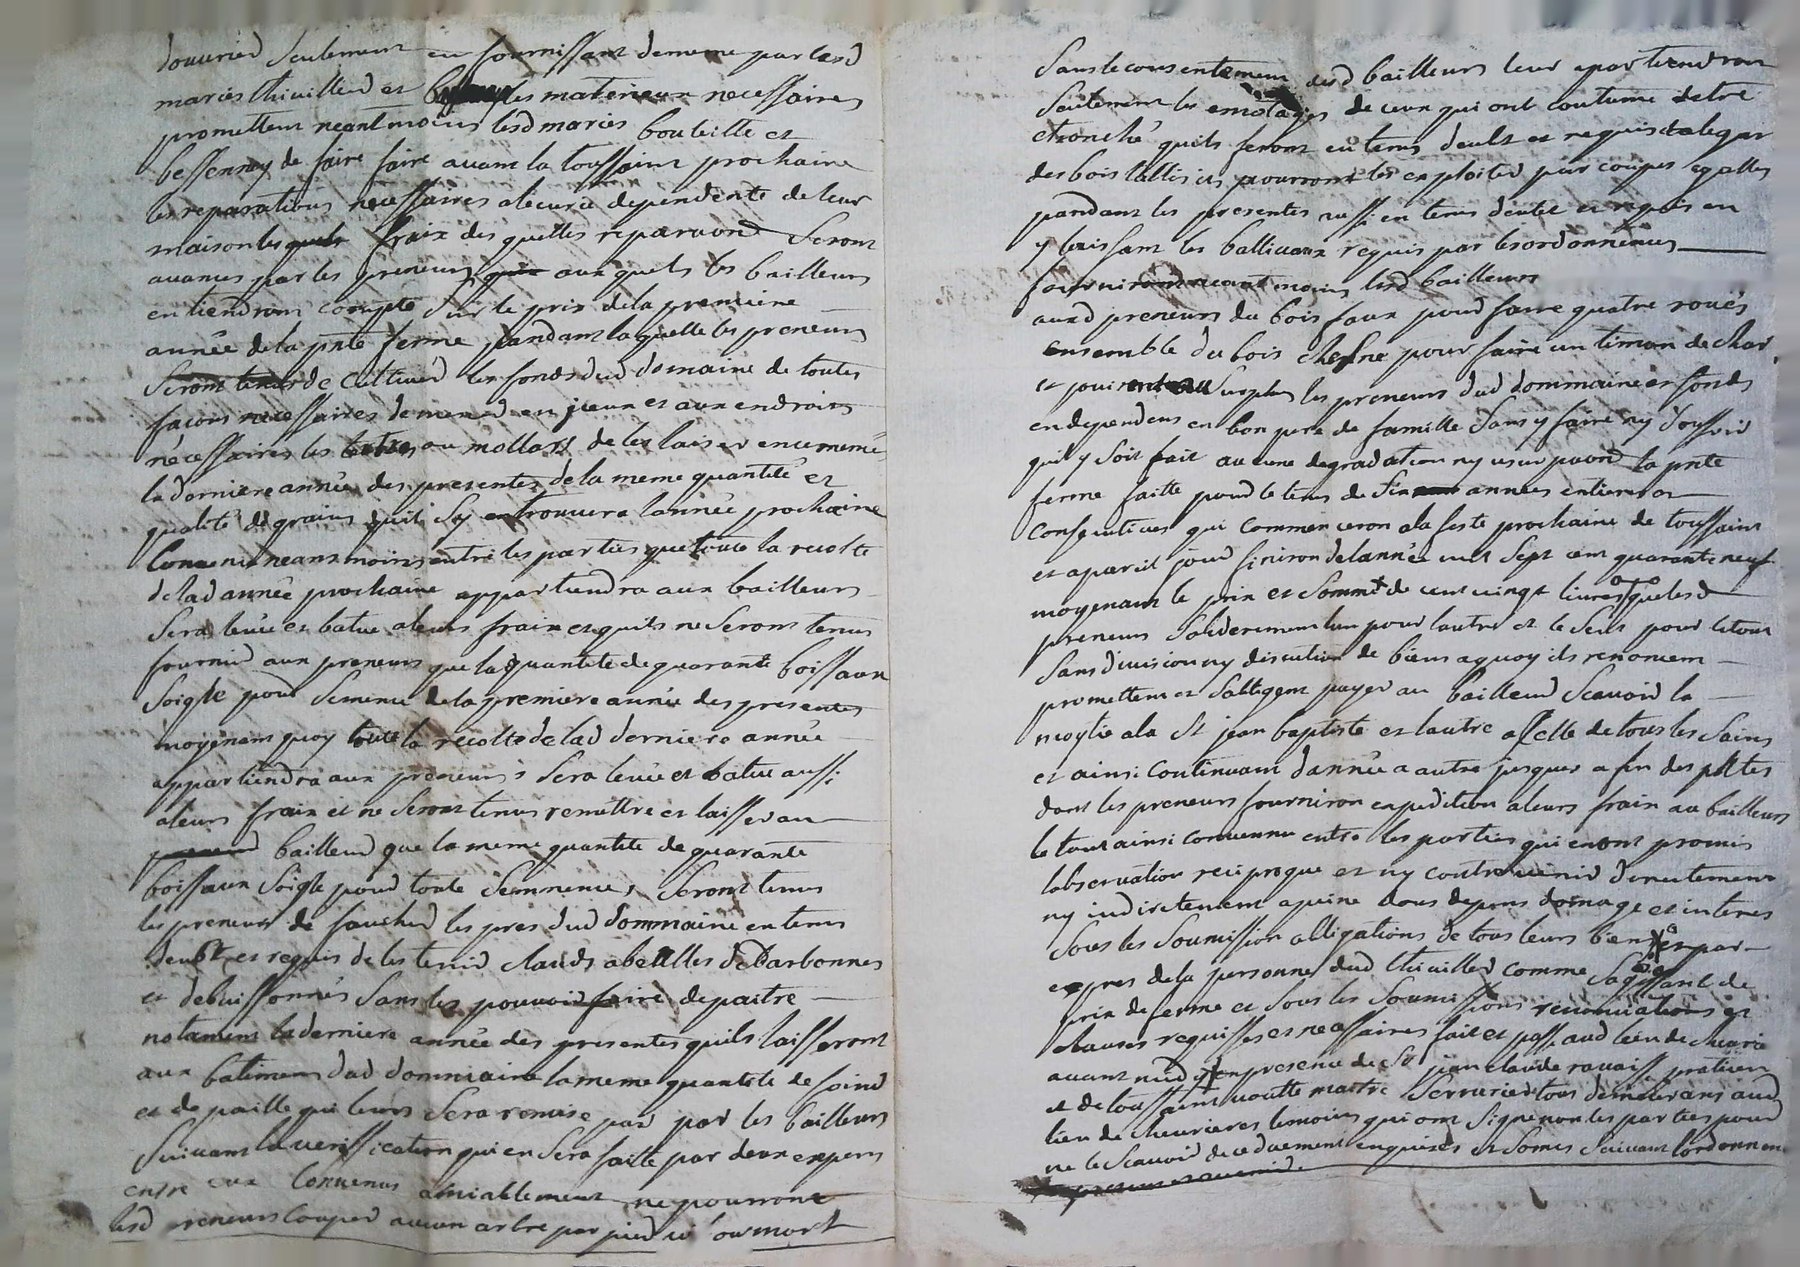 douvried seulement en fournissant de meme par lesd
mariés thivilled et les materieux necessaires
promettent neantmoins lesd mariés bouteille et
bessennay de faire faire avant la toussaint prochaine
les reparations necessaires alecurie dependente de leur
maison lesquels fraix des quelles reparaond seront
avancés par les preneurs aux quels les bailleurs
en tiendront compte sur le prix de la premiere
année de la pnte ferme pandant laquelle les preneurs
seront tenus de cultived les fonds dud domaine de toutes
façons necessaires de mened en jeux et aux endroits
nécessaires les ou mollars de les laisser ensemencé
la derniere année des presentes de la meme quantité et
qualité de grains quil sy entrouvera lannée prochaine
Convenu neantmoins entre les parties que toute la recolte
de lad année prochaine appartiendra aux bailleurs
sera levée et batue aleurs fraix et quils ne seront tenus
fournid aux preneurs que la quantité de quarante boissaux
soigle pour semence de la premiere année des presentes
moyenant quoy toute la recolte de lad derniere année
appartiendra aux preneurs sera levée et batue aussi
aleurs fraix et ne seront tenus remettre et laisser au
bailleur que la meme quantité de quarante
boissaux soigle pour toute semence, seront tenus
les preneurs de fauched les prés dud dommaine en tems
deubt et requis de les tenid clauds abeallés debarbonnes
et debuissonnés sans les pouvoir faire depaitre
notament la derniere année des presentes quils laisseront
aux batimens dud dommaine la meme quantité de foind
et de paille qui leurs sera remise par les bailleurs
suivant la verification qui en sera faite par deux expers
entre eux convenus amiablement ne pourront
lesd preneurs couped aucun arbre par pied vif ou mort
sans le consentement desd bailleurs leur apartiendron
seulement les emotages de ceux qui ont coutume detre
etronché quils feront en tems deubt et requis et alegar
des bois tallis ils pourront les exploited par coupes egalles
pandant les presentes aussi en tems deubt et requis en
y laissant les ballivaux requis par les ordonnences
fourniront neantmoins lesd bailleurs
auxd preneurs du bois faux pour faire quatre roués
ensemble du bois chesne pour faire un timon de char
et jouiront au surplus les preneurs dud dommaine et fonds
en dependens en bon pere de famille sans y faire ny souffrir
quil y soit fait aucune degradation ny usurpaond la pnte
ferme faitte pour le tems de six années entieres et
consecutives qui commenceron ala feste prochaine de toussaint
et apareil jour finiron de lannée mil sept cent quarante neuf
moyenant le prix et somme de cent vingt livres que lesd
preneurs soliderement lun pour lautre et le seul pour letout
sans division ny discution de biens aquoy ils renoncent
promettent et sobligent payer au bailleur scavoir la
moytié ala st jean baptiste et lautre a celle de tous les saints
et ainsi continuant dannée a autre jusques a fin des pntes
dont les preneurs fourniron expedition aleurs fraix au bailleurs
le tout ainsi convennu entre les parties qui en ont promis
lobservation reciproque et ny contrevenir directement
ny indirectement apeine tous depens domage et interes
sous les soumission obligations de tous leurs biens et par
expres de la personne dud thivilled comme sagissant de
prix de ferme et sous les soumissions renonciations et
clauses requisses et necessaires fait et passé aud lieu de chevrie
avant midy en presence de sr jean claude ravaiss praticien
et de toussaint voutte maitre serrurier tous demeurans aud
lieu de chevrieres temoins qui ont signé non les parties pour
ne le scavoir de ce duement enquizés et somés suivant lordonnen